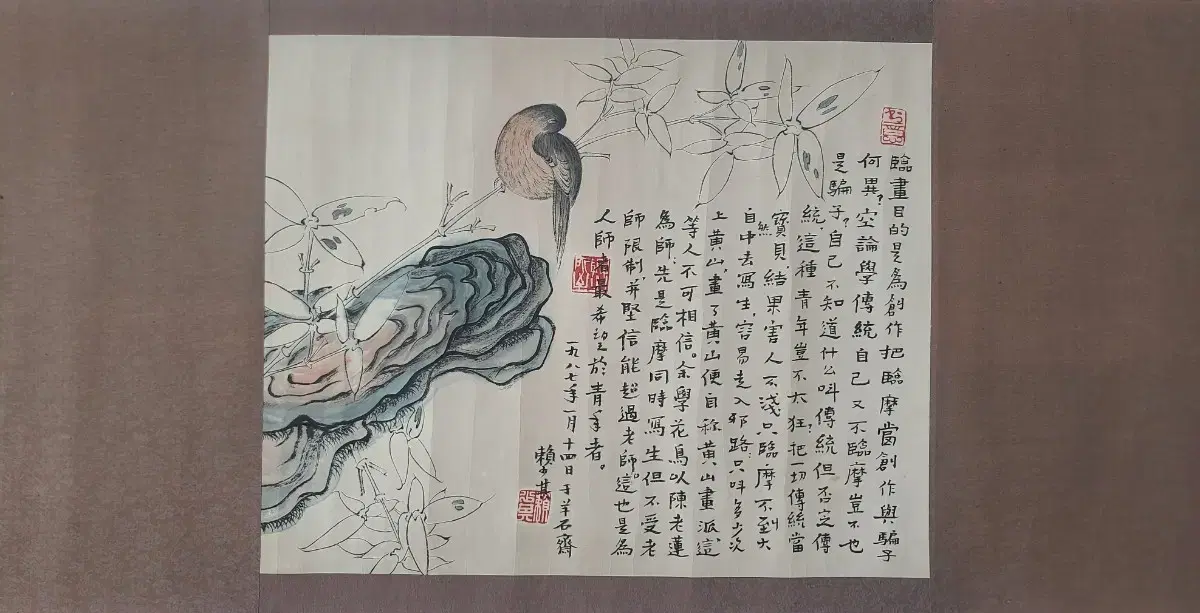 臨畫目的是為創作把臨摩當創作與騙子
何異?空論學傳統自己又不臨摩豈不也
是騙子?自己不知道什么叫傳統但否定傳
統,這種青年豈不太狂?把一切傳統當
寶貝,結果害人不淺只臨摩不到大
自然中去寫生,容易走入邪路:只叫多少次
上黃山,畫了黃山便自称黃山畫派,這
等人不可相信。余學花鳥以陳老蓮
為師,先是臨摩同時寫生但不受老
師限制,并堅信能超過老師。這也是為
人師者最希望於青年者。
一九八七年一月十四日于羊石齋
賴少其